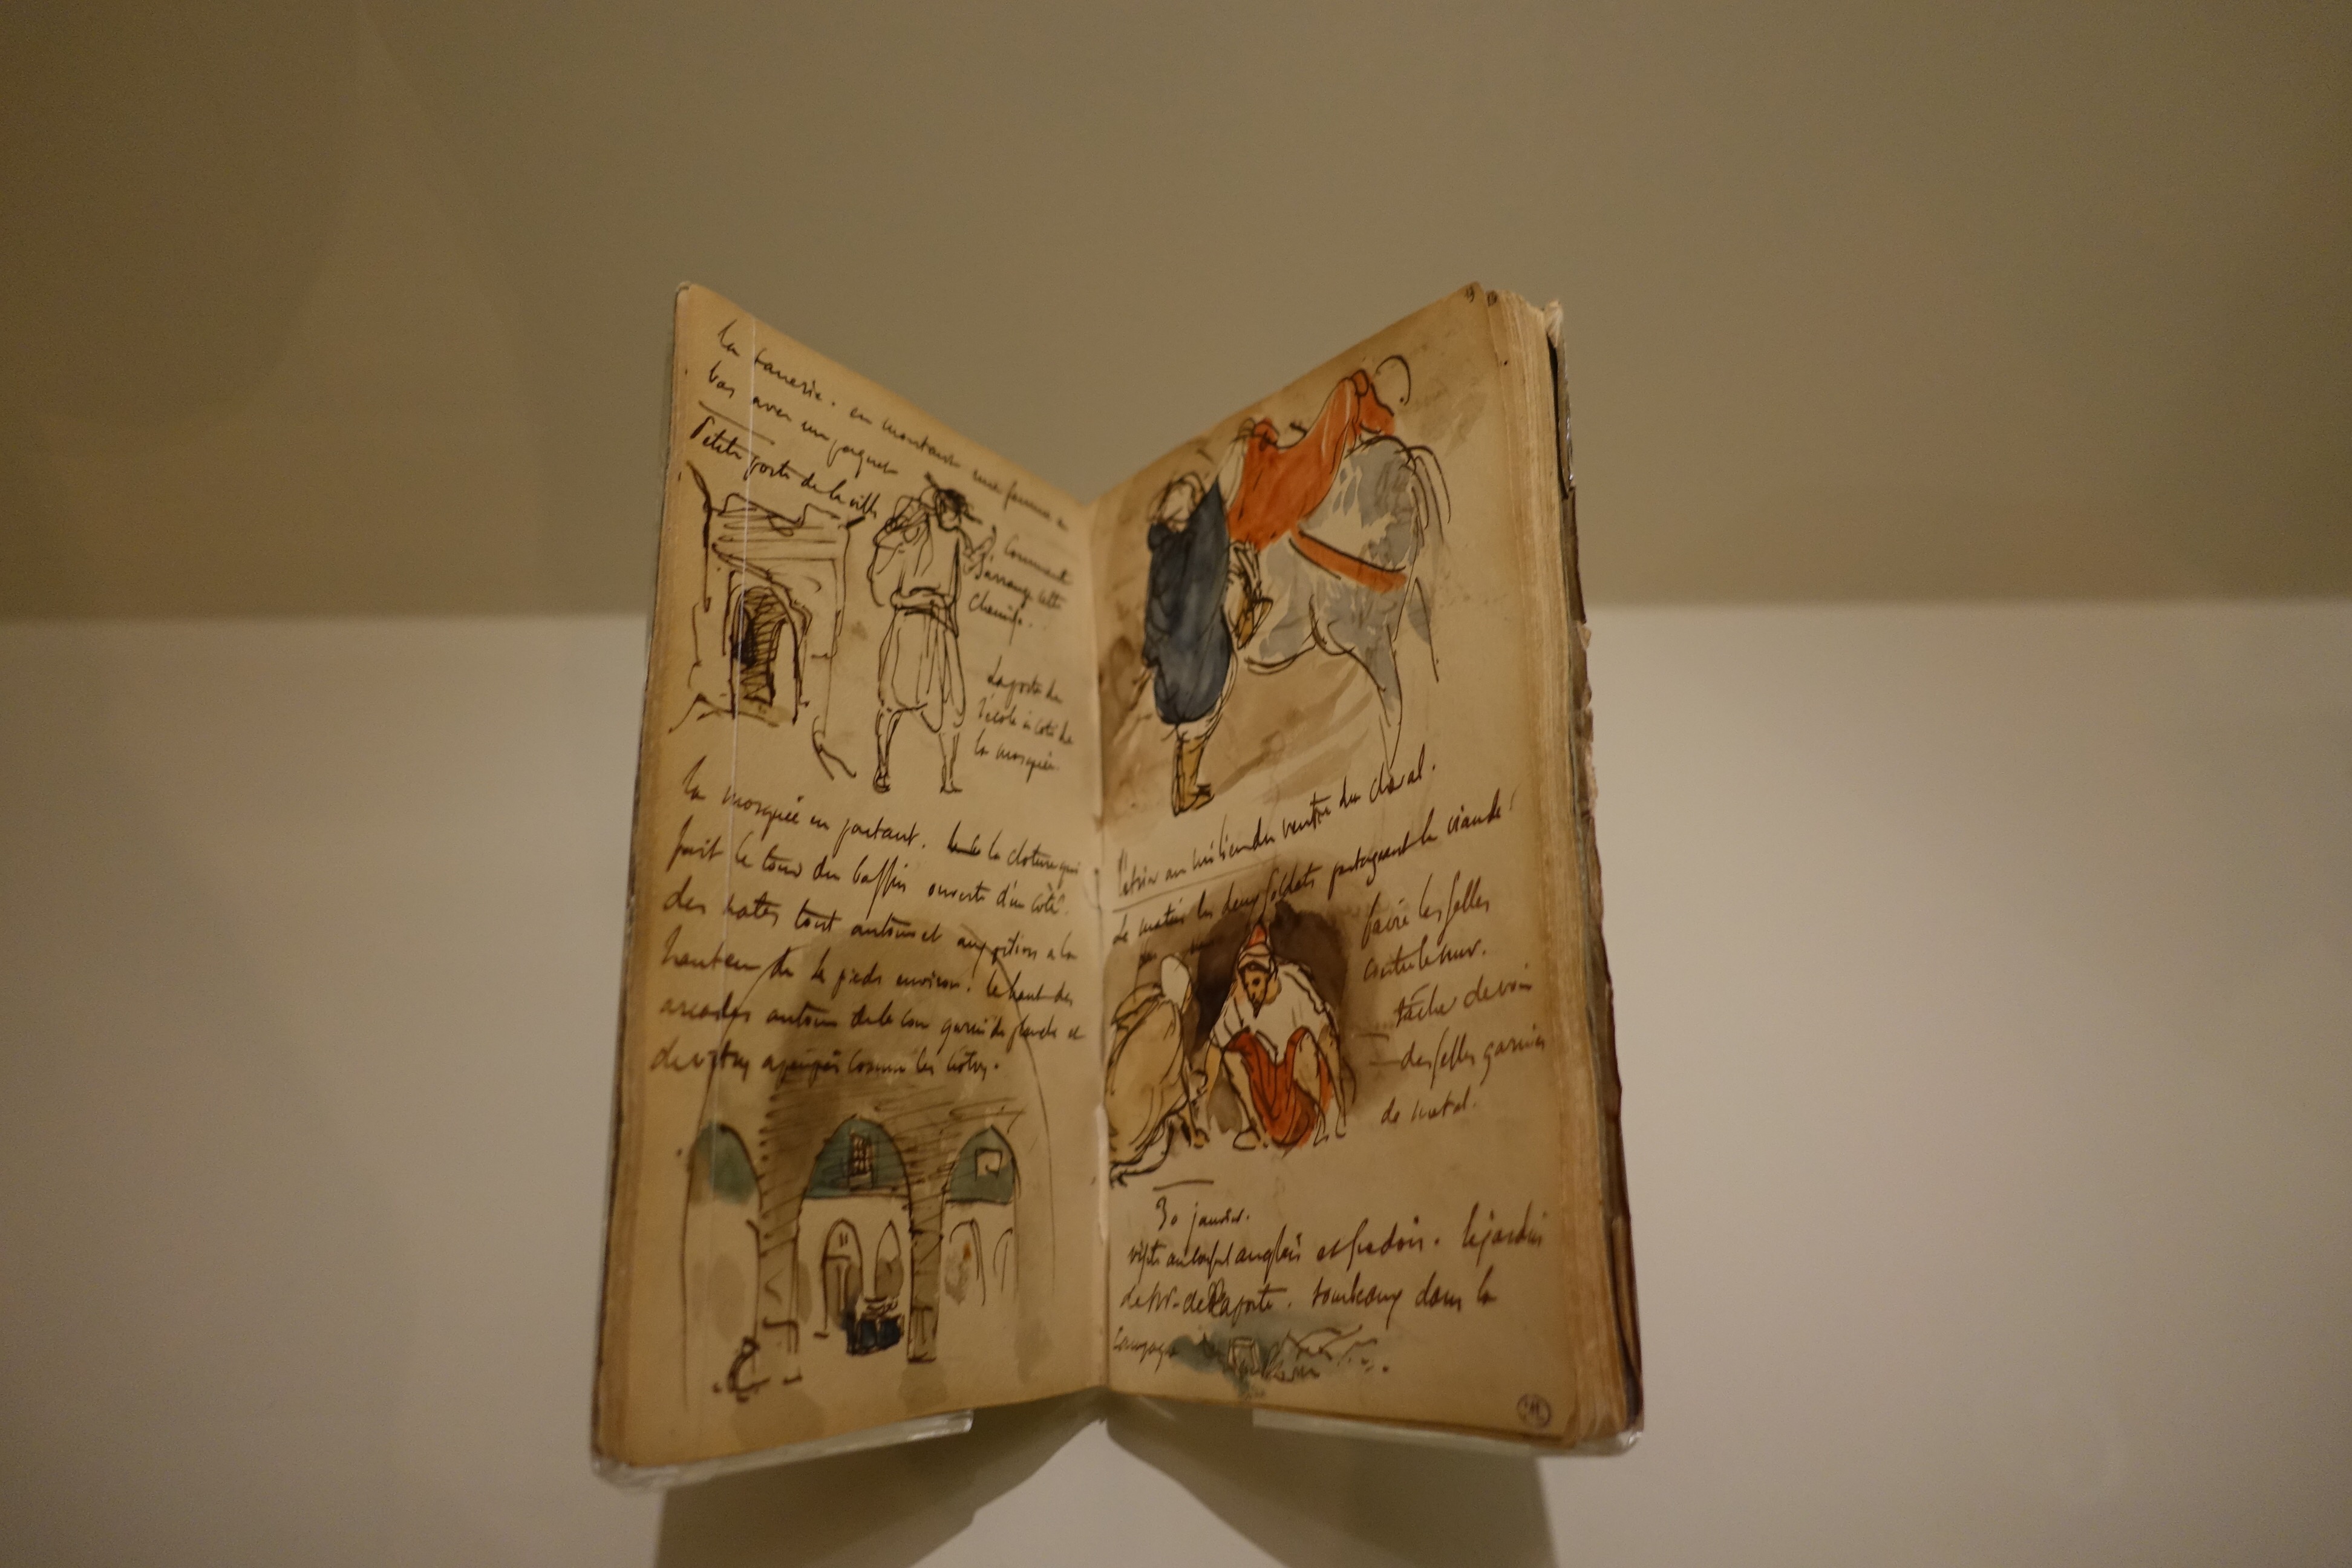 La tannerie. en montant une femme en
bas avec un paquet
Petite porte de la ville
Comment
s'arrange cette
chemise.
La porte de
l'école à côté de
la mosquée.
la mosquée en partant. la cloture qui
fait le tour du bassin ouverte d'un côté.
des nates tout autour et aux pilliers a la
hauteur de 4 pieds environ. le haut des
arcades autour de la cour garni de planche et
de vitres comme les notres.
9
l'étrier au milieu du ventre du cheval.
Le matin les deux soldats partageant la viande
faire les selles
contre le mur.
tacher de voir
des selles garnies
de metal.
30 janvier.
visite au consul anglais et suedois. le jardin
de Mr. de Laporte. tombeaux dans la
campagne